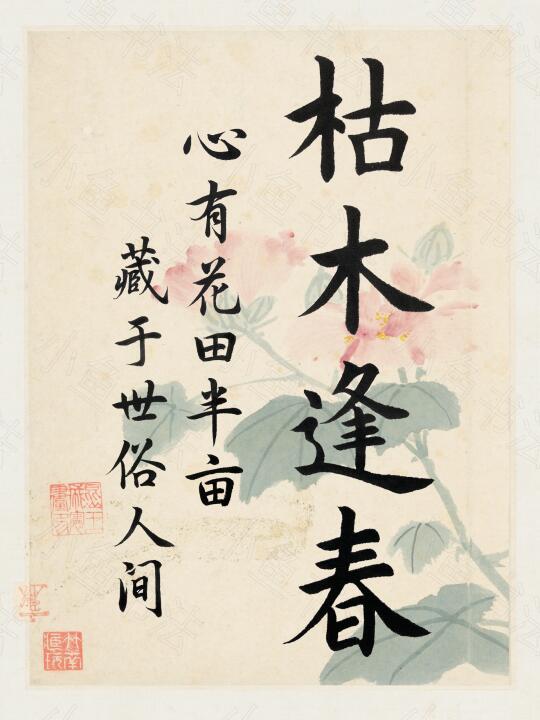 枯木逢春
心有花田半亩
藏于世俗人间